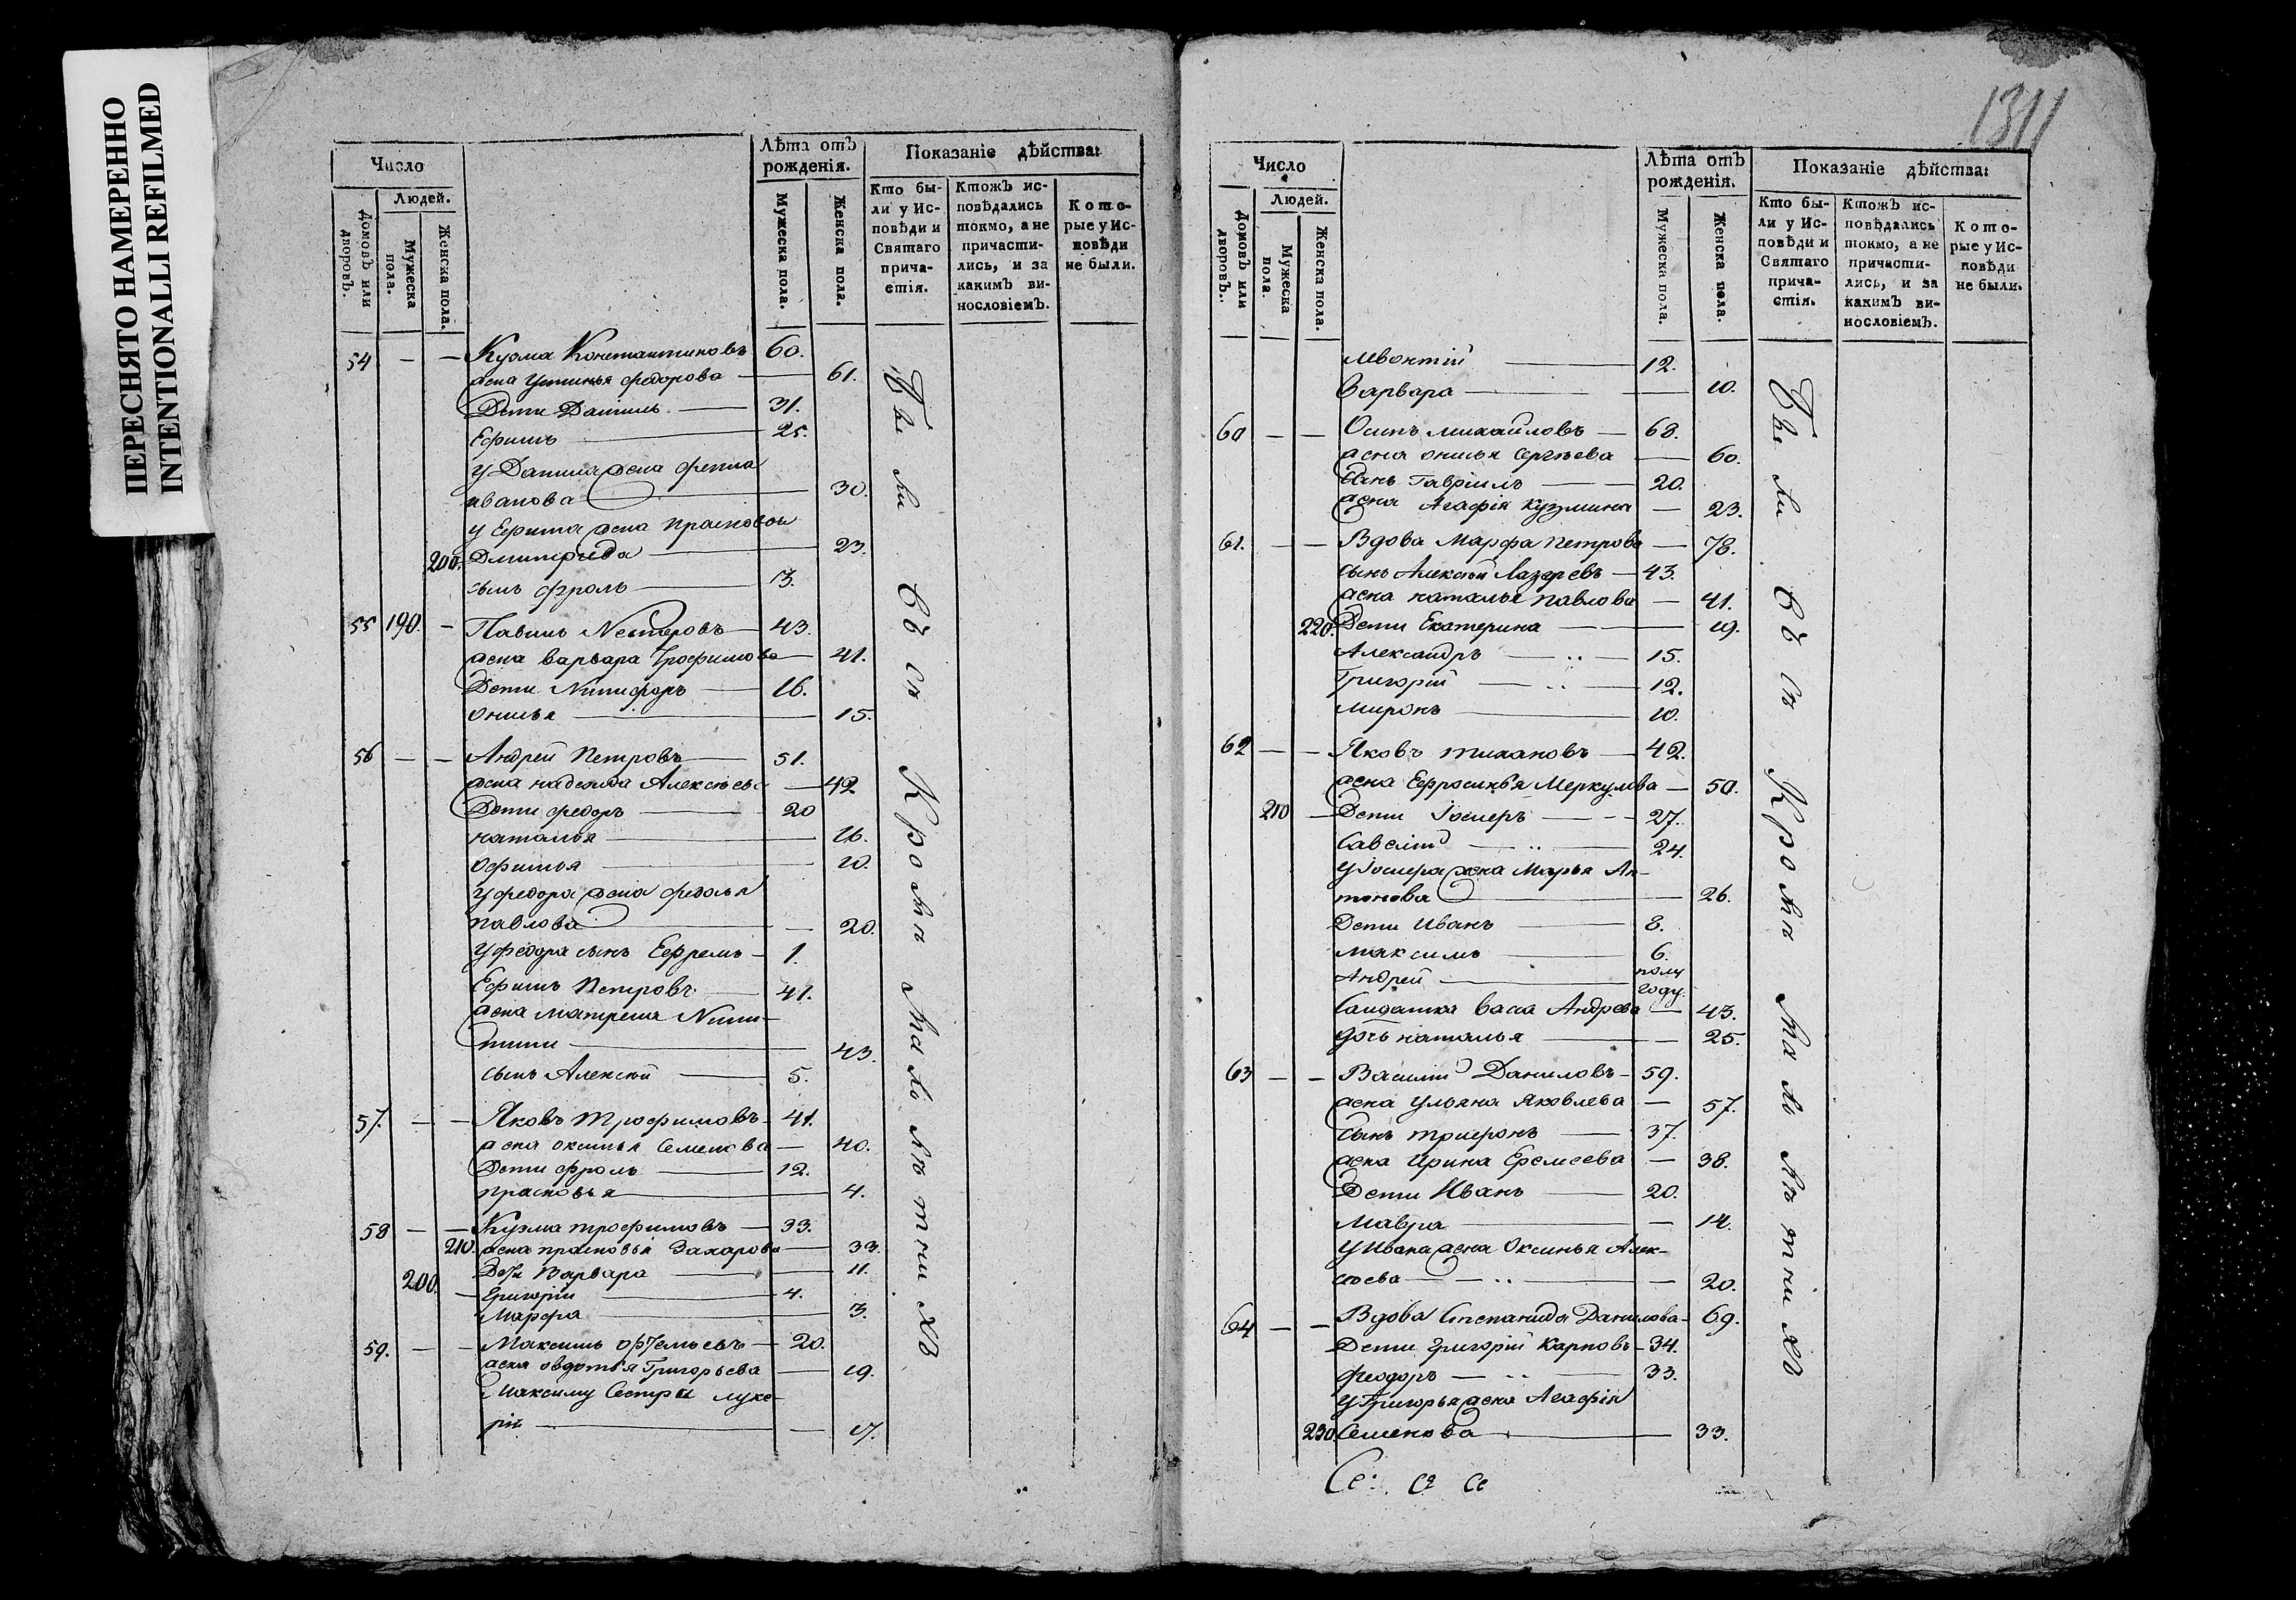 ПЕРЕСНЯТО НАМЕРЕННО
INTENTIONALLI REFILMED
Число
Людей.
Домовъ или дворовъ.
Мужеска пола.
Женска пола.
Лѣта отъ рожденія.
Мужеска пола.
Женска пола.
Показаніе дѣйства:
Кто бы-
ли у Ис-
повѣди и
Святаго
прича-
стія.
Ктожъ ис-
повѣдались
токмо, а не
причасти-
лись, и за
какимъ ви-
нословіемъ.
Кото-
рые у Ис-
повѣди
не были.
54 — — Кузма Константиновъ 60.
жена Устинья федорова — 61.
Дети Данилъ — 31.
Ефимъ — 25.
у Данила жена фекла
иванова — 30.
у Ефима жена прасковья
200. Дмитриева — 23.
сынъ фролъ — 13.
55 190. — Павилъ Нестеровъ — 43.
жена варвара Трофимова — 41.
Дети Никифоръ — 16.
онисья — 15.
56 — — Андрей Петровъ — 51.
жена надежда Алексѣева — 42
Дети федоръ — 20
наталья — 16.
офимья — 10.
у федора жена федосья
павлова — 20.
у федора сынъ Ефремъ — 1.
Ефимъ Петровъ — 41.
жена матрена Ники-
тина — 43.
сынъ Алексѣй — 5.
57. — — Яковъ Трофимовъ — 41.
жена оксинья Семенова — 40.
Дети фролъ — 12.
прасковья — 4.
58 — — Кузма трофимовъ — 33.
210. жена прасковья Захарова — 33.
Дети Варвара — 11.
200. — Григорій — 4.
марфа — 3.
59. — — Максимъ артемьевъ — 20.
жена овдотья Григорьева — 19.
Максиму Сестра луке-
рія — 17.
Были
всѣ
Кромѣ
малолѣтнихъ
1311
Число
Людей.
Домовъ или дворовъ.
Мужеска пола.
Женска пола.
Лѣта отъ рожденія.
Мужеска пола.
Женска пола.
Показаніе дѣйства:
Кто бы-
ли у Ис-
повѣди и
Святаго
прича-
стія.
Ктожъ ис-
повѣдались
токмо, а не
причасти-
лись, и за
какимъ ви-
нословіемъ.
Кото-
рые у Ис-
повѣди
не были.
Леонтій — 12.
Варвара — 10.
60 — — Осипъ михайловъ — 68.
жена онисья Сергѣева — 60.
сынъ Гавріилъ — 20.
жена Агафія кузмина — 23.
61. — — Вдова Марфа петрова — 78.
сынъ Алексѣй Лазаревъ — 43.
жена наталья павлова — 41.
220. Дети Екатерина — 19.
Александръ — 15.
Григорій — 12.
миронъ — 10.
62 — — Яковъ тихановъ — 42.
жена Ефросинья Меркулова — 50.
210 — Дети — 27.
Савелій — 24.
жена Марья Ан-
тонова — 26.
Дети Иванъ — 8.
максимъ — 6.
Андрей — полу
году.
Салдатка васса Андреева — 43.
дочь наталья — 25.
63 — — Василій Даниловъ — 59.
жена ульяна Яковлева — 57.
Сынъ трифонъ — 37.
жена Ирина Еремеева — 38.
Дети Иванъ — 20.
Мавра — 14.
у Ивана жена Оксинья Алек-
сѣева — 20.
64 — — Вдова Степанида Данилова — 69.
Дети григорій Карповъ — 34.
феодоръ — 33.
у Григорья жена Агафія
230. Семенова — 33.
Были
всѣ
Кромѣ
малолѣтнихъ